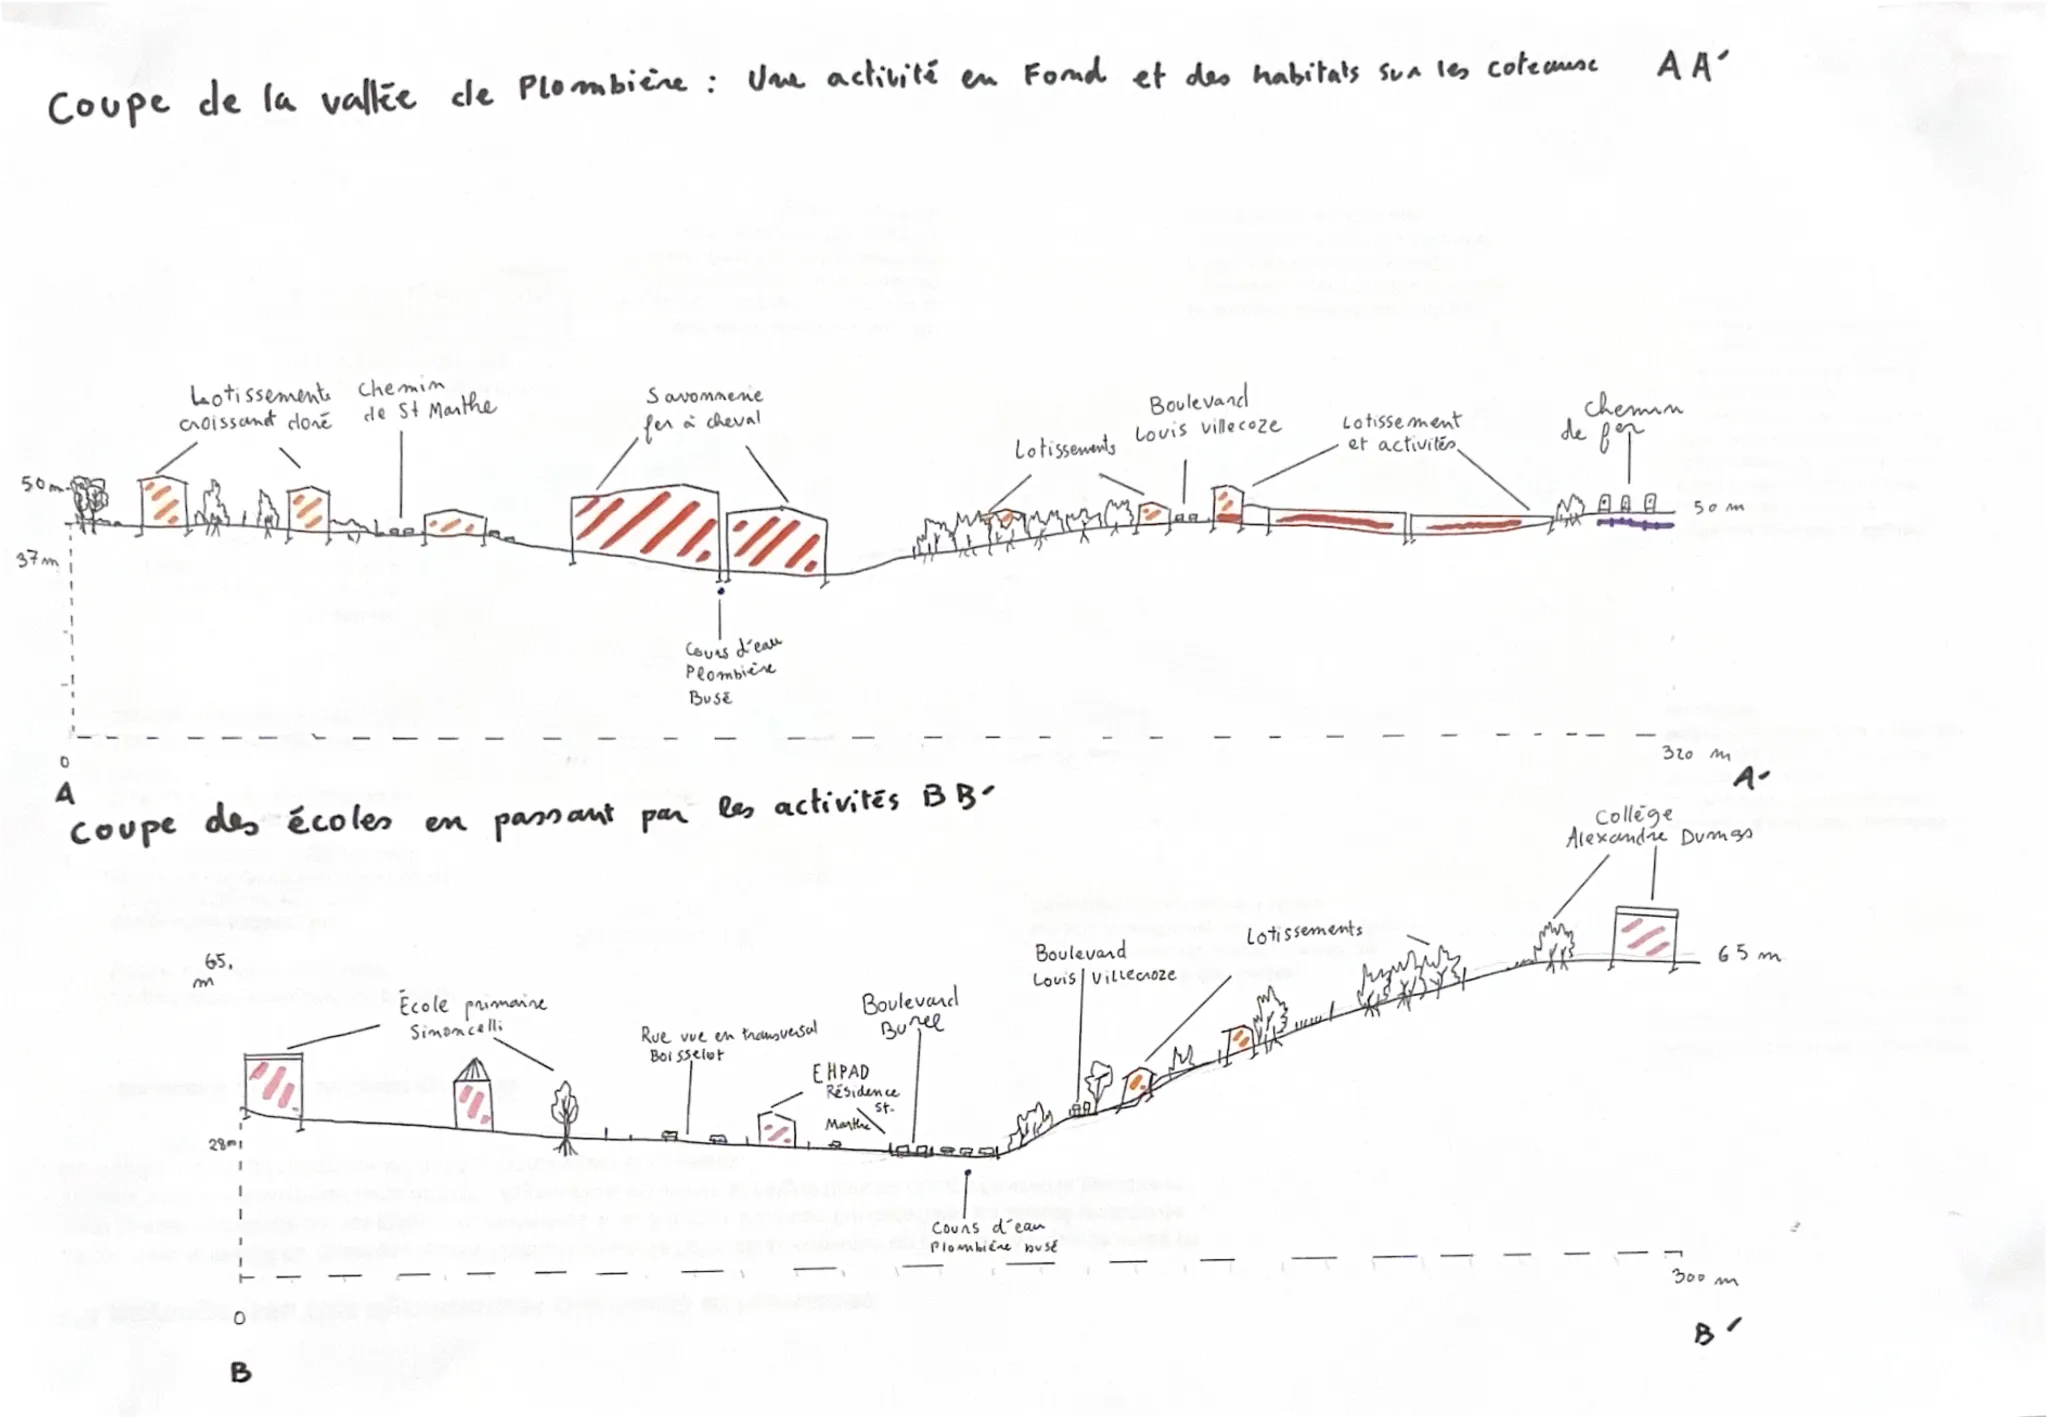 Coupe de la vallée de Plombière : Une activité en Fond et des habitats sur les coteause AA'
Lotissements
croissant doré
Chemin
de St Marthe
Savonnerie
fer à cheval
Lotissements
Boulevard
Louis villecoze
Lotissement
et activités
chemin
de fer
50m
37m
50 m
Cours d'eau
Plombière
Busé
0
320 m
A
A'
coupe des écoles en passant par les activités BB'
Collége
Alexandre Dumas
65.
m
École primaire
Simoncelli
Rue vue en transversal
Boisselot
EHPAD
Résidence
St-
Marthe
Boulevard
Burel
Boulevard
Louis Villecroze
Lotissements
65 m
28m
Cours d'eau
Plombière busé
0
300 m
B
B'